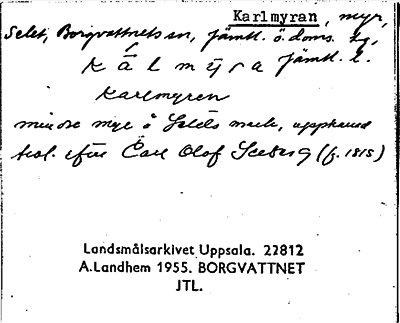 Karlmyran, myr,
Selet, Borgvattnets sn, Jämtl. ö. doms. tg,
Jämtl. l.
Kålmyra
Karlmyren
mindre myr å Selets mark, uppkand
efter Carl Olof (f. 1815)
Landsmålsarkivet Uppsala. 22812
A.Landhem 1955. BORGVATTNET
JTL.